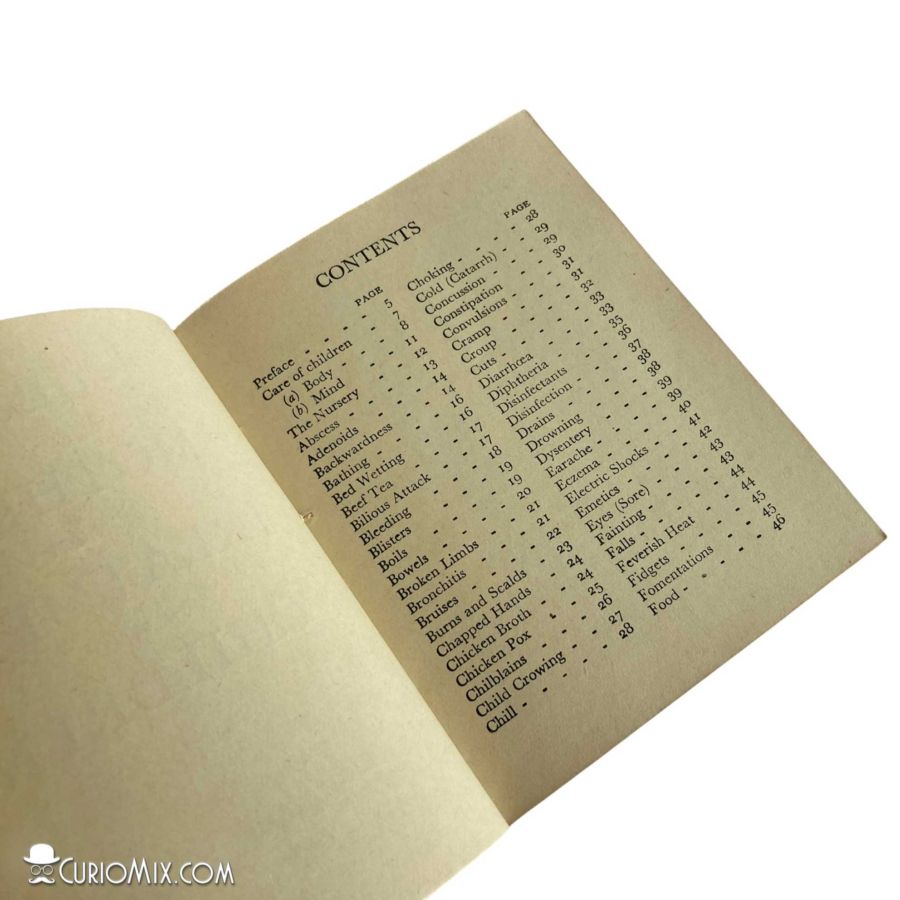 CONTENTS
PAGE
Preface - - - - 5
Care of children - 7
(a) Body - - 8
(b) Mind - - 11
The Nursery - - 12
Abscess - - - 13
Adenoids - - - 14
Backwardness - - 14
Bathing - - - 16
Bed Wetting - - 16
Beef Tea - - - 17
Bilious Attack - - 17
Bleeding - - - 18
Blisters - - - 19
Boils - - - - 19
Bowels - - - 20
Broken Limbs - - 21
Bronchitis - - - 21
Bruises - - - 22
Burns and Scalds - 23
Chapped Hands - - 24
Chicken Broth - - 24
Chicken Pox - - 25
Chilblains - - - 26
Child Crowing - - 27
Chill - - - - - 28
PAGE
Choking - - - - 28
Cold (Catarrh) - - 29
Concussion - - - 29
Constipation - - 30
Convulsions - - - 31
Cramp - - - - 31
Croup - - - - 32
Cuts - - - - 33
Diarrhœa - - - 33
Diphtheria - - - 35
Disinfectants - - 36
Disinfection - - - 37
Drains - - - - 38
Drowning - - - 38
Dysentery - - - 39
Earache - - - 39
Eczema - - - - 40
Electric Shocks - - 41
Emetics - - - 42
Eyes (Sore) - - - 43
Fainting - - - - 43
Falls - - - - 44
Feverish Heat - - 44
Fidgets - - - - 45
Fomentations - - 45
Food - - - - 46
CurioMix.com